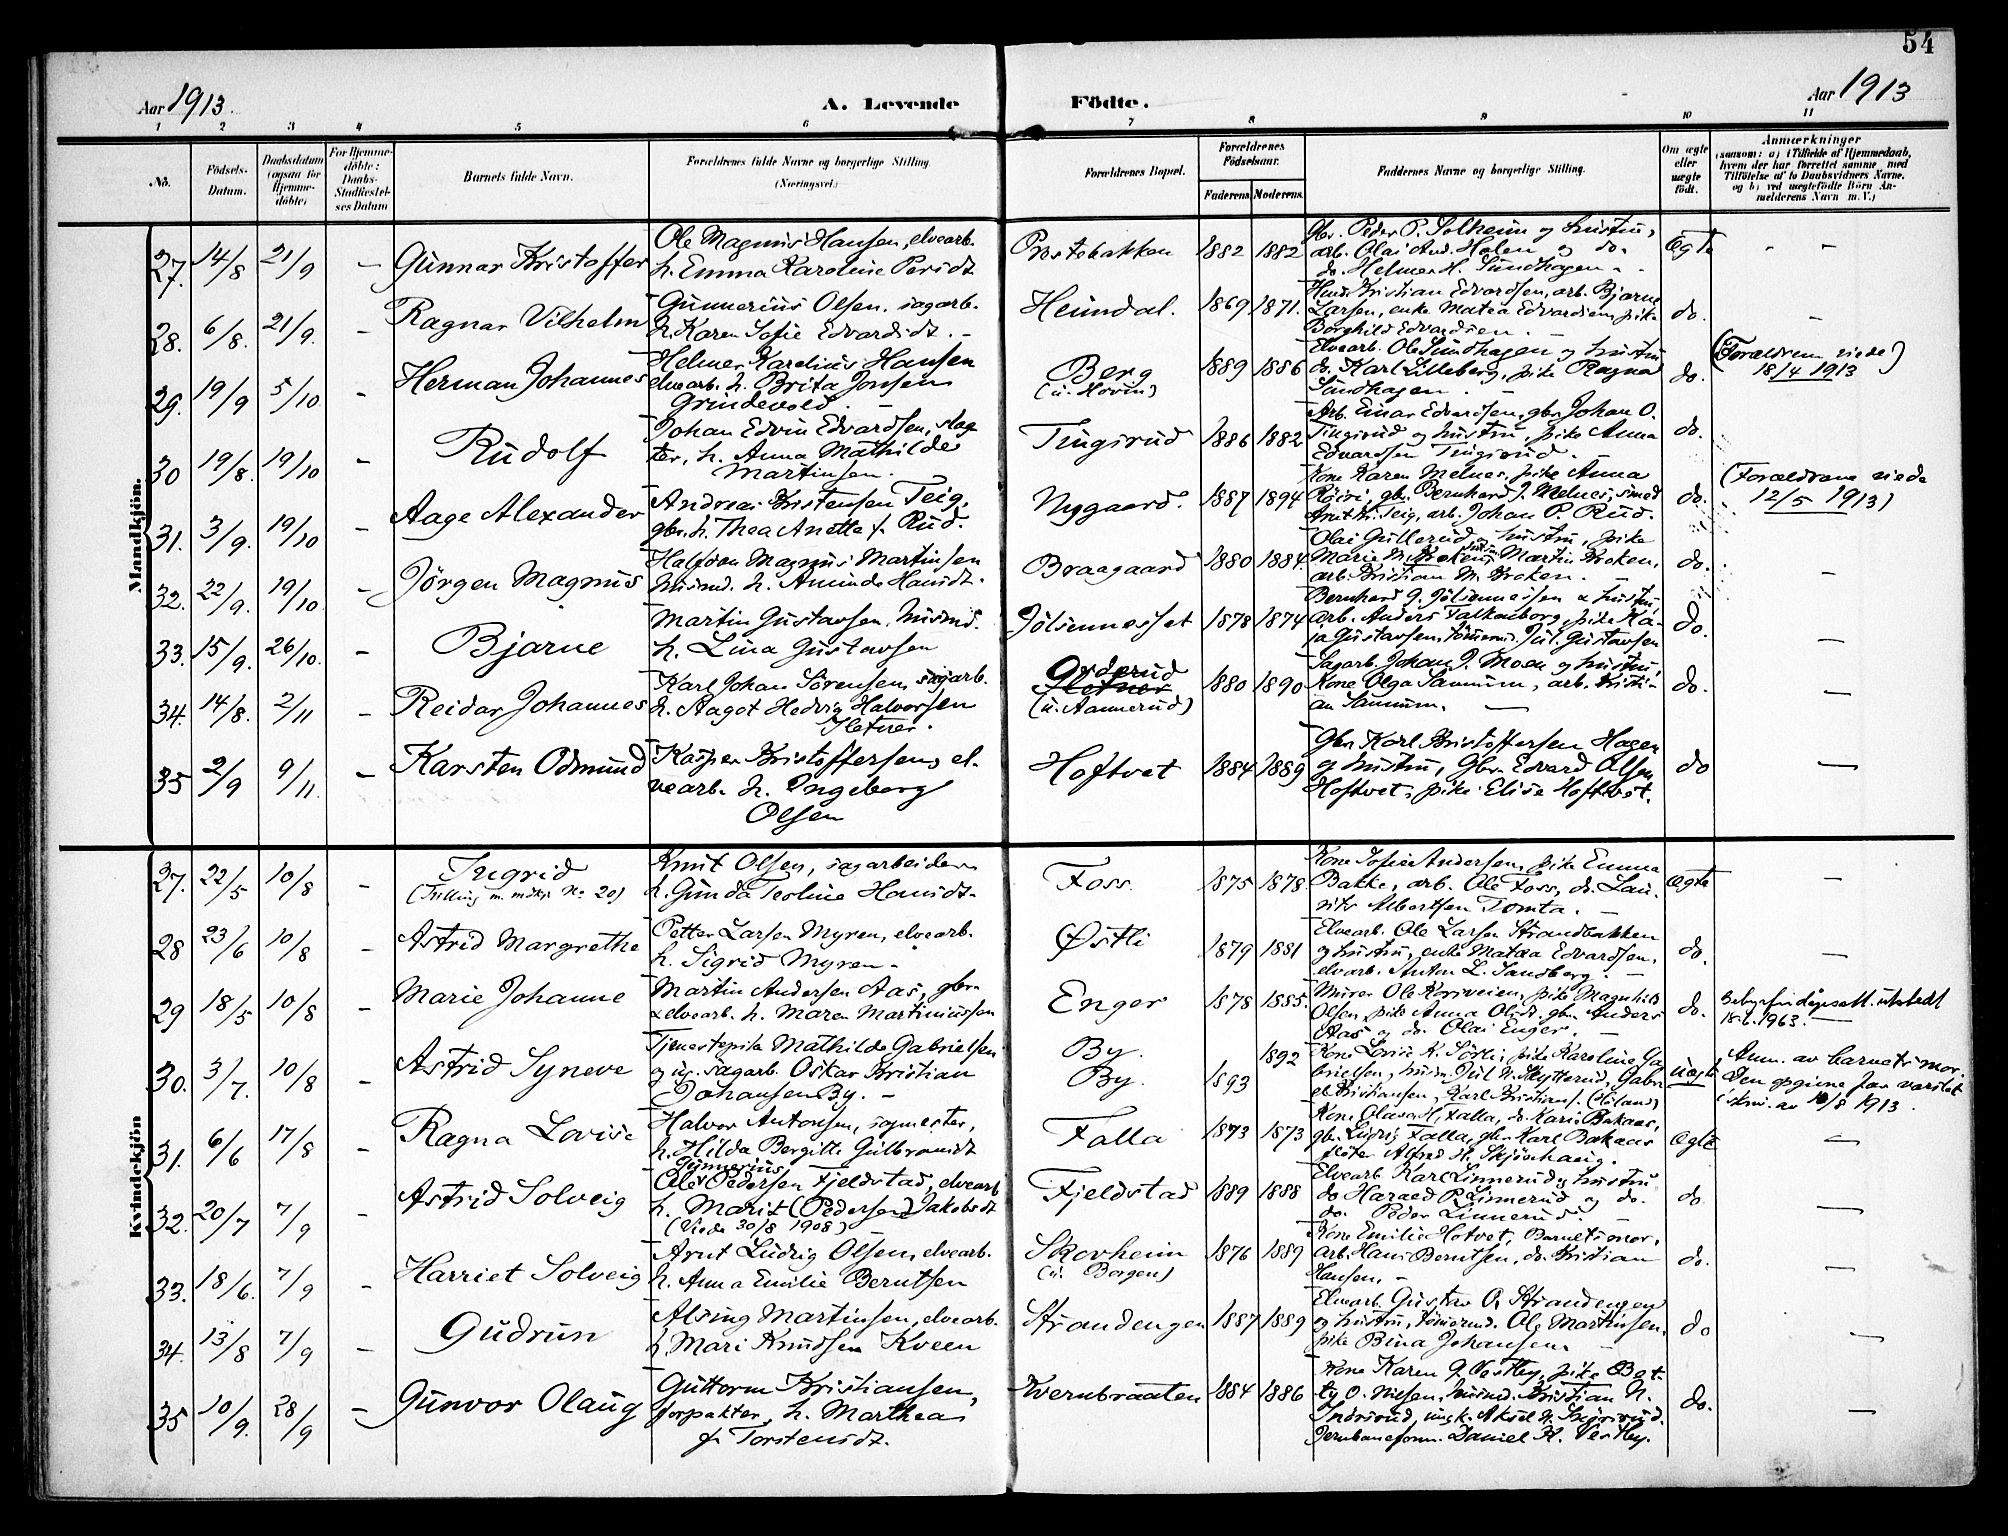 54
Aar 1913.
A. Levende Födte.
Aar 1913
1 2 3 4 5 6 7 8 9 10 11
No.
Födsels-Datum.
Daabsdatum (ogsaa for Hjemme-döbte)
For Hjemme-döbte: Daabs-Stadfæstelses Datum
Barnets fulde Navn.
Forældrenes fulde Navne og borgerlige Stilling. (Næringsvei.)
Forældrenes Bopæl.
Forældrenes Födselsaar.
Faderens Moderens.
Faddernes Navne og borgerlige Stilling.
Om ægte eller uægte födt.
Anmærkninger
(saasom: a) i Tilfælde af Hjemmedaab, hvem der har forrettet samme med Tilföielse af to Daabsvidners Navne, og b) ved uægtefödte Börn Anmelderens Navn m. V.)
Mandkjön.
27. 14/8 21/9 – Gunnar Kristoffer
Ole Magnus Hansen, elvearb.
h. Emma Karoline Persdt
Prestebakken 1882 1882
gbr. Peder P. Solheim og hustru,
arb. Olai And. Holen og do.
do. Helmer H. Sundhagen - -
Ægte - -
28. 6/8. 21/9. – Ragnar Vilhelm
Gunnerius Olsen, sagarb.
h. Karen Sofie Edvardsdt. -
Heimdal. 1869 1871.
Kristian Edvardsen, arb. Bjarne
Larsen, enke Matea Edvardsen, pike
Borghild Edvardsen. -
do. -
29. 19/9 5/10. – Herman Johannes
Helmer Karelius Hansen
elvearb. h. Brita Jonsen
Grindevold. -
Berg
(u. Hovin)
1889 1886
Elvearb. Ole Sundhagen og hustru
do. Karl Lilleberg, pike Ragna
Sundhagen. -
do.
(Forældrene viede)
18/4 1913
30 19/8. 19/10 – Rudolf
Johan Edvin Edvardsen, slag-
ter, h. Anna Mathilde
Martinsen. -
Tingsrud 1886 1882
Arb. Einar Edvardsen, gbr. Johan O.
Tingsrud og hustru, pike Anna
Edvardsen Tingsrud. -
do.
31. 3/9. 19/10 – Aage Alexander
Andreas Kristensen Teig,
gbr. h. Thea Anette f. Rud.
Nygaard. 1887 1894
Kone Karen Melnes, pike Anna
gbr. Bernhard J. Melnes, smed
Knut K. Teig, arb. Johan P. Rud.
do.
(Forældrene viede
12/5 1913)
32. 22/9. 19/10. – Jörgen Magnus
Halfdan Magnus Martinsen
husmd. h. Aminda Hansdt.
Braagaard 1880 1884.
Olai Gullerud og hustru, pike
Marie M. Kroken, Martin Kroken,
arb. Kristian M. Kroken. -
do. -
33. 15/9. 26/10. – Bjarne
Martin Gustavsen, husmd.
h. Lina Gustavsen
Jölsennesset 1878 1874
Bernhard J. Jölsennessen & hustru,
arb. Anders Falkenborg, pike Ka-
ja Gustavsen, tömmermd. Jul. Gustavsen
do. -
34. 14/8. 2/11 – Reidar Johannes
Karl Johan Sörensen, sagarb.
h. Aagot Hedvig Halvorsen
Sletner.
Orderud
Sletner
(u. Aannerud)
1880 1890
Sagarb. Johan J. Moen og hustru,
Kone Olga Sannum, arb. Kristi-
an Sannum. -
do. -
35 2/9 9/11. – Karsten Odmund
Kasper Kristoffersen, el-
vearb. h. Ingeborg
Olsen
Hoftvet 1884 1889
Gbr. Karl Kristoffersen Hagen
og hustru, Gbr. Edvard Olsen
Hoftvet, pike Elise Hoftvet.
do -
Kvindekjön
27. 22/5 10/8 – Ingrid
(Tvilling m. mdkj. No. 20)
Knut Olsen, sagarbeider
h. Gunda Teoline Hansdt.
Foss. 1875 1878
Kone Sofie Andersen, pike Emma
Bakke, arb. Ole Foss, do. Lau-
rits Albertsen Tomta. -
Ægte -
28 23/6 10/8 – Astrid Margrethe
Petter Larsen Myren, elvearb.
h. Sigrid Myren -
Østli 1879 1881
Elvearb. Ole Larsen Strandbakken
og hustru, enke Matea Edvardsen,
elvearb. Anton L. Sandberg. -
do. -
29 18/5 10/8 – Marie Johanne
Martin Andersen Aas, gbr.
& elvearb. h. Maren Martiniussen
Enger 1878 1885.
Murer Ole Korsveien, pike Magnhild
Olsen, pike Anna Olsdt. gbr. Anders
Aas og do. Olai Enger. -
do.
18.6.1963. -
30. 3/7. 10/8 – Astrid Syneve
Tjenestepike Mathilde Gabrielsen
og ug. sagarb. Oskar Kristian
Johansen By. -
By. 1892
By. 1893
Kone Lovise K. Sörli, pike Karoline Ga-
brielsen, husm. Jul. N. Skytterud, Gabri-
el Kristiansen, Karl Kristians. (Höland)
uægte
Anm. av barnets mor.
Den opgivne far varslet
i skr. av 10/8 1913.
31. 6/6 17/8 – Ragna Lovise
Halvor Antonsen, sagmester,
h. Hilda Bergitte Gulbrandsdt
Falla 1873 1873
Kone Olava H. Falla, do. Karen Bakaas,
gbr. Ludvig Falla, gbr. Karl Bakaas
fløter Alfred H. Skjönhaug.
Ægte -
32. 20/7 7/9 – Astrid Solveig
Gunnerius
Ole Pedersen Fjeldstad, elvearb
h. Marit (Pedersen) Jakobsdt
(Viede 30/8 1908)
Fjeldstad 1889 1888
Elvearb Karl Linnerud og hustru
do Harald P. Linnerud og do.
do. Peder Linnerud. -
do. -
33. 18/6. 7/9 – Harriet Solveig
Arnt Ludvig Olsen, elvearb.
h. Anna Emilie Berntsen
Skovheim
(u. Borgen)
1876 1889
Kone Emilie Hotvet, Barnets mor,
arb. Hans Berntsen, do. Kristian
Hansen. -
do. -
34. 13/8 7/9 – Gudrun
Alsing Martinsen, elvearb.
h. Mari Knudsen Kveen
Strandengen 1887 1889
Elvearb. Gustav O. Strandengen
og hustru, tömmermd. Ole Martinsen,
pike Bina Johansen -
do -
35 10/9. 28/9 – Gunvor Olaug
Guttorm Kristiansen,
forpakter, h. Marthea
f. Torstensdt.
Kvernbraaten 1884 1886
Kone Karen G. Vestby, pike Bet-
ty O. Nilsen, husmd. Kristian N.
ungk. Aksel N.
Jernbaneform. Daniel H. Vestby.
do. -